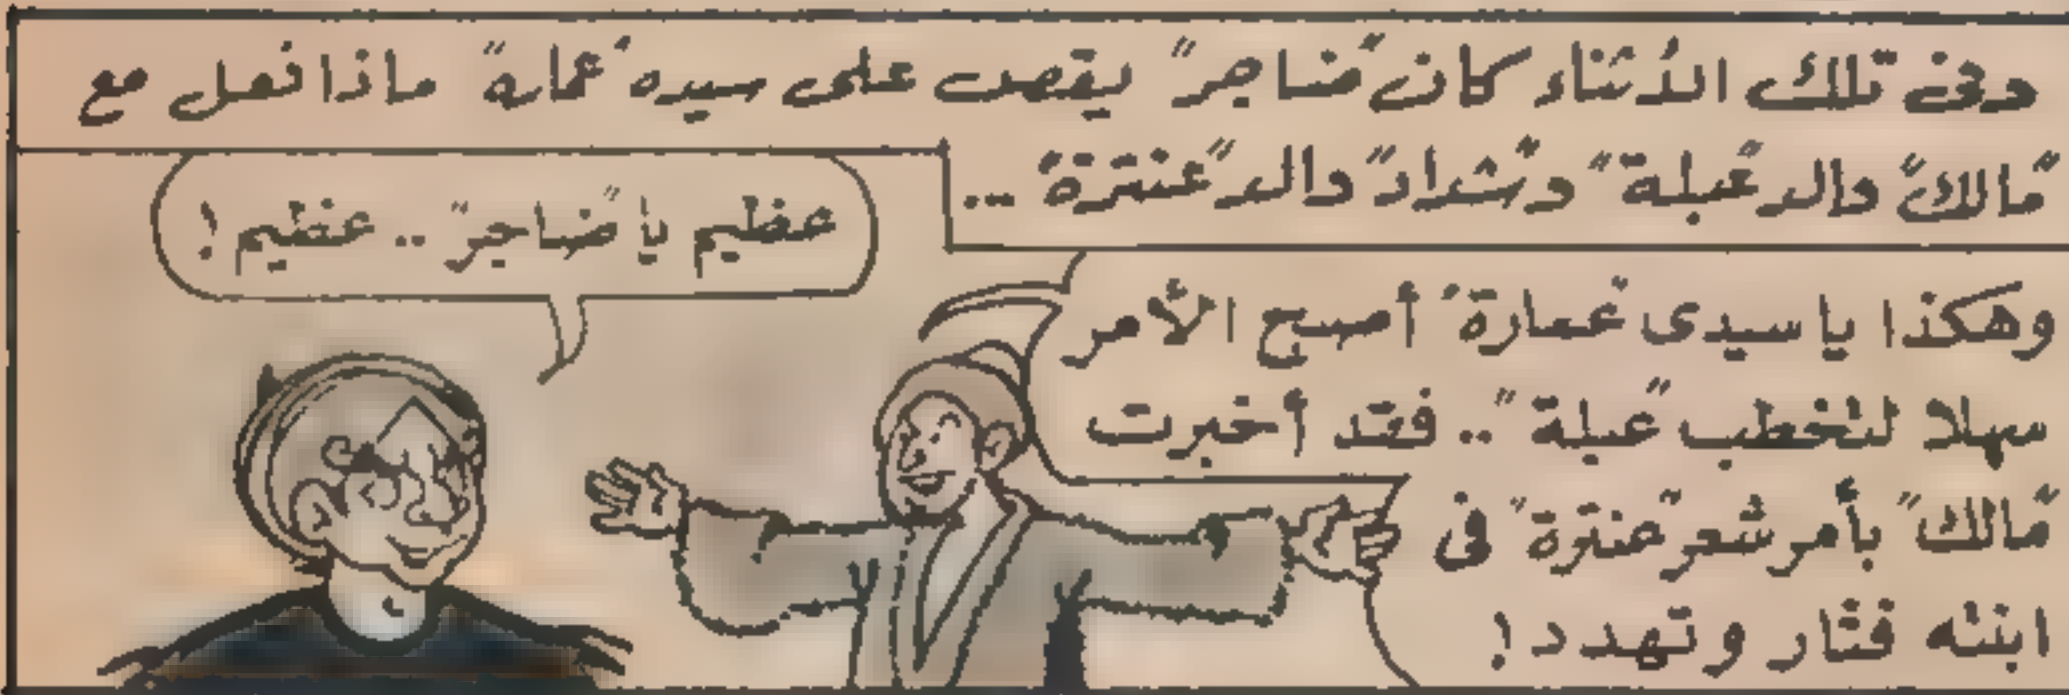 وفى تلك الأثناء كان "ضاجر" يقص على سيده "عمارة" ماذا فعل مع
"مالك" والد "عبلة" و"شداد" والد "عنترة" ...
وهكذا يا سيدى "عمارة" أصبح الأمر
سهلا لتخطب "عبلة" .. فقد أخبرت
"مالك" بأمر شعر "عنترة" فى
ابنته فثار وتهدد !
عظيم يا "ضاجر" .. عظيم !